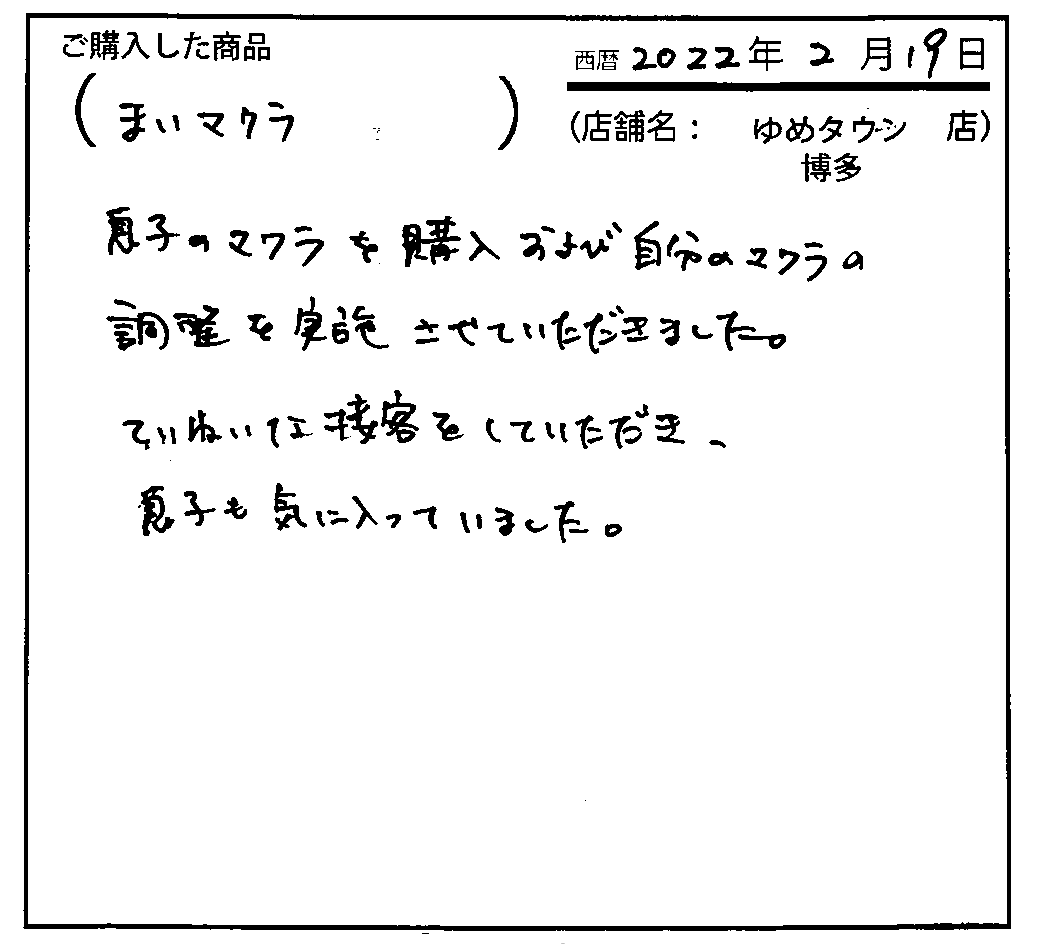 ご購入した商品
西暦 2022年 2月19日
(まいマクラ)
(店舗名: ゆめタウン 店)
博多
息子のマクラを購入および自分のマクラの
調整を実施させていただきました。
ていねいな接客をしていただき、
息子も気に入っていました。